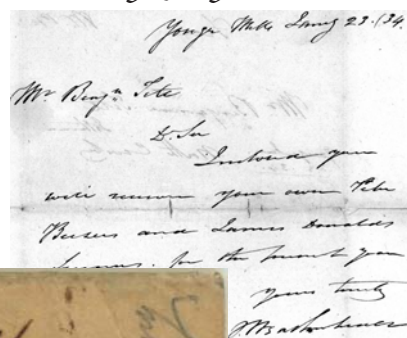 Yonge Mills Jany 23. /34.
Mr Benjn Tett
Dr Sir
Inclosed you
will receive your own Peter
Beesers and James Donalds
for the amount you
yours truly